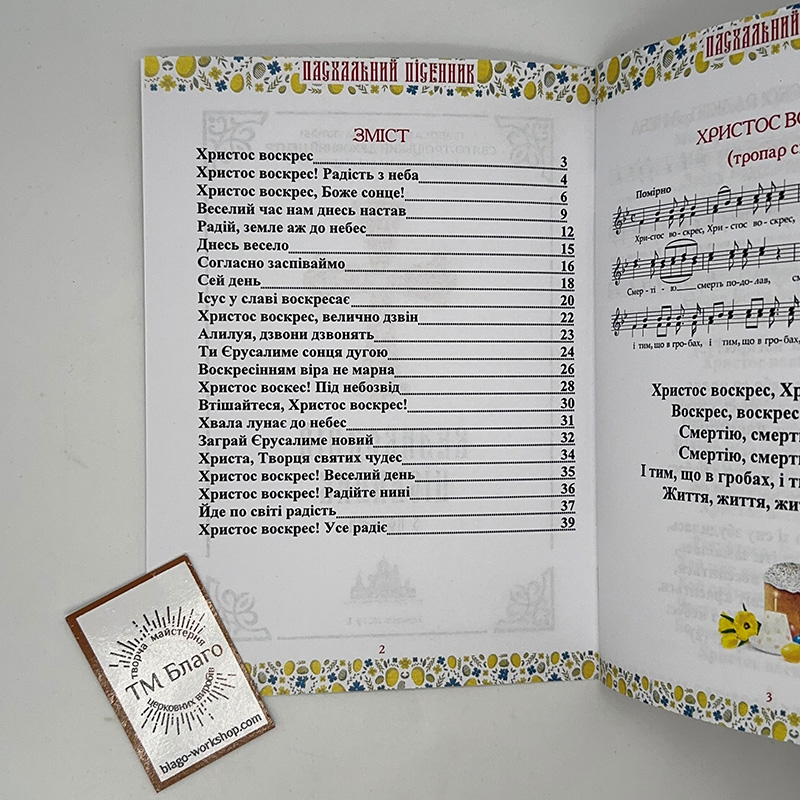 ПАСХАЛЬНИЙ ПІСЕННИК
ЗМІСТ
Христос воскрес 3
Христос воскрес! Радість з неба 4
Христос воскрес, Боже сонце! 6
Веселий час нам днесь настав 9
Радій, земле аж до небес 12
Днесь весело 15
Согласно заспіваймо 16
Сей день 18
Ісус у славі воскресає 20
Христос воскрес, велично дзвін 22
Алилуя, дзвони дзвонять 23
Ти Єрусалиме сонця дугою 24
Воскресінням віра не марна 26
Христос воскес! Під небозвід 28
Втішайтеся, Христос воскрес! 30
Хвала лунає до небес 31
Заграй Єрусалиме новий 32
Христа, Творця святих чудес 34
Христос воскрес! Веселий день 35
Христос воскрес! Радійте нині 36
Йде по світі радість 37
Христос воскрес! Усе радіє 39
2
ПАСХАЛЬНИЙ
ХРИСТОС ВО
(тропар с
Помірно
Хри-стос во-скрес, Хри-стос во-скрес,
Смер-ті-ю смерть по-до-лав, с
і тим, що в гро-бах, і тим, що в гробах,
Христос воскрес, Хр
Воскрес, воскрес
Смертію, смерт
Смертію, смерт
І тим, що в гробах, і т
Життя, життя, жи
3
творча майстерня
ТМ Благо
церковних виробів
blago-workshop.com